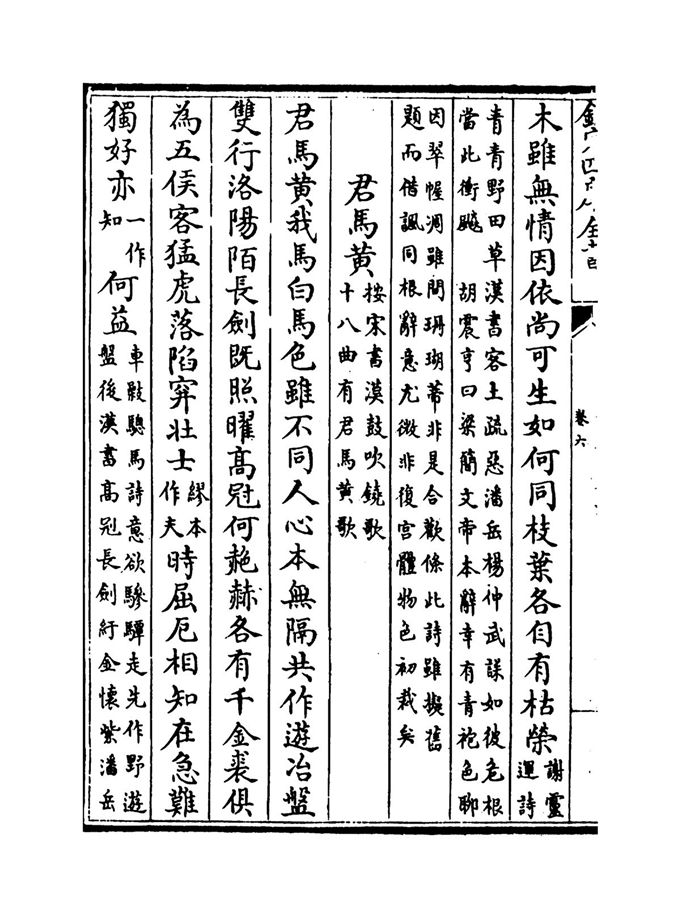 卷六
木雖無情因依尚可生如何同枝葉各自有枯榮謝靈
運詩
青青野田草漢書客土疏惡潘岳楊仲武誄如彼危根
當此衝飈 胡震亨曰梁簡文帝本辭幸有青袍色聊
因翠幄凋雖間珊瑚蒂非是合歡條此詩雖擬舊
題而借諷同根辭意尤微非復宮體物色初裁矣
君馬黃按宋書漢鼓吹鐃歌
十八曲有君馬黃歌
君馬黃我馬白馬色雖不同人心本無隔共作遊冶盤
雙行洛陽陌長劍既照曜高冠何赩赫各有千金裘俱
為五侯客猛虎落陷穽壯士繆本
作夫時屈厄相知在急難
獨好亦一作
知何益車㪇驄馬詩意欲驂驔走先作野遊
盤後漢書高冠長劍紆金懷紫潘岳